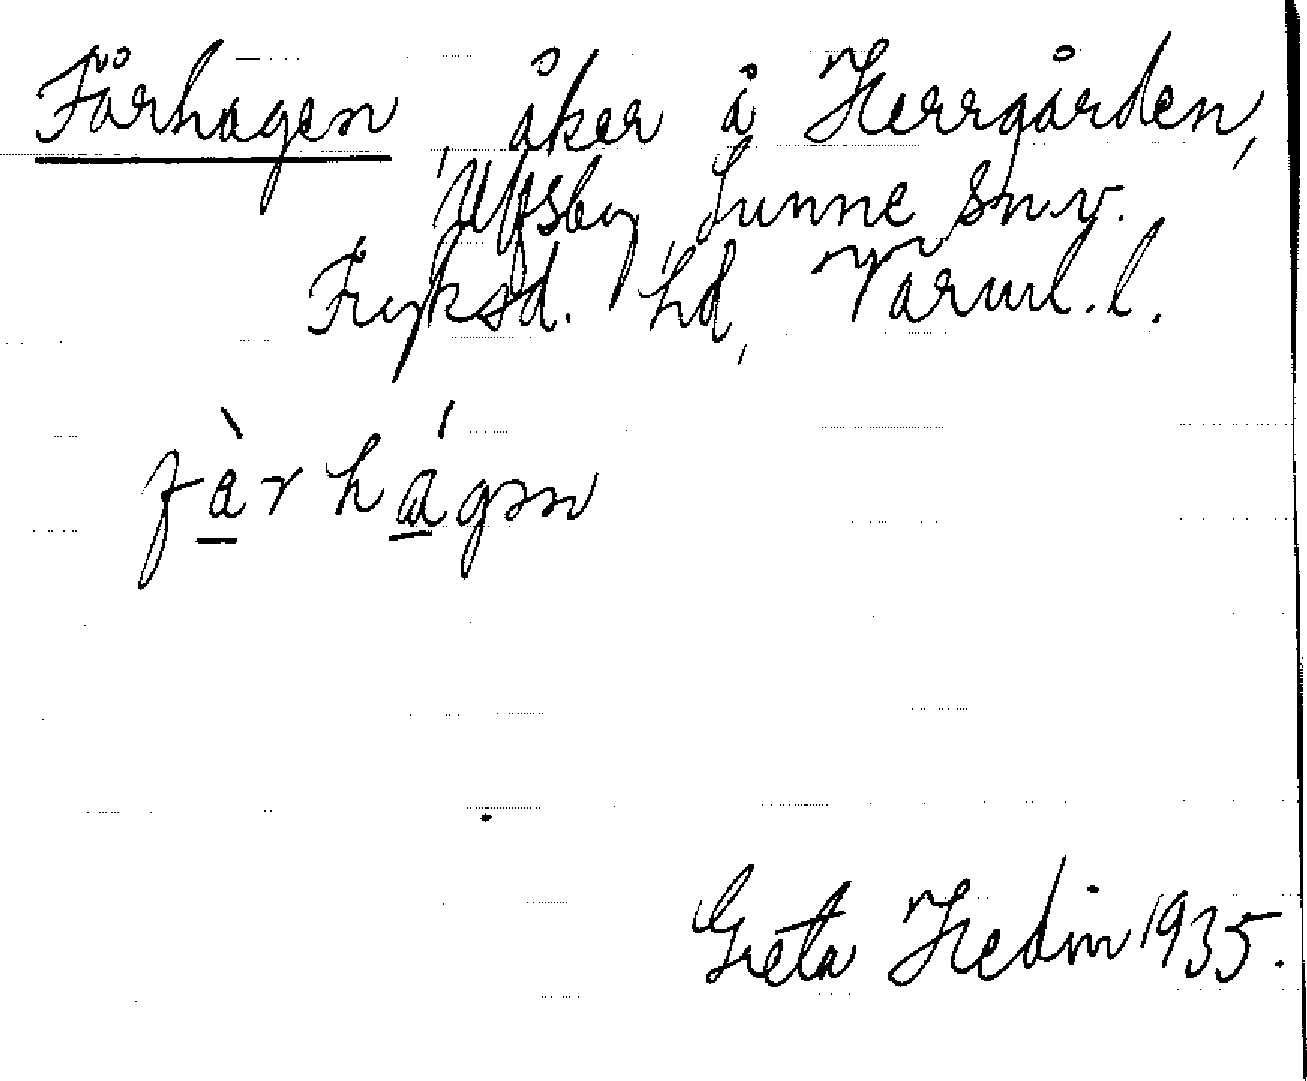 Fårhagen, åker å Herrgården,
Ulfsby, Sunne sn. v.
Fryksd. hd, Värml. l.
fàrhágen
Greta Hedin 1935.